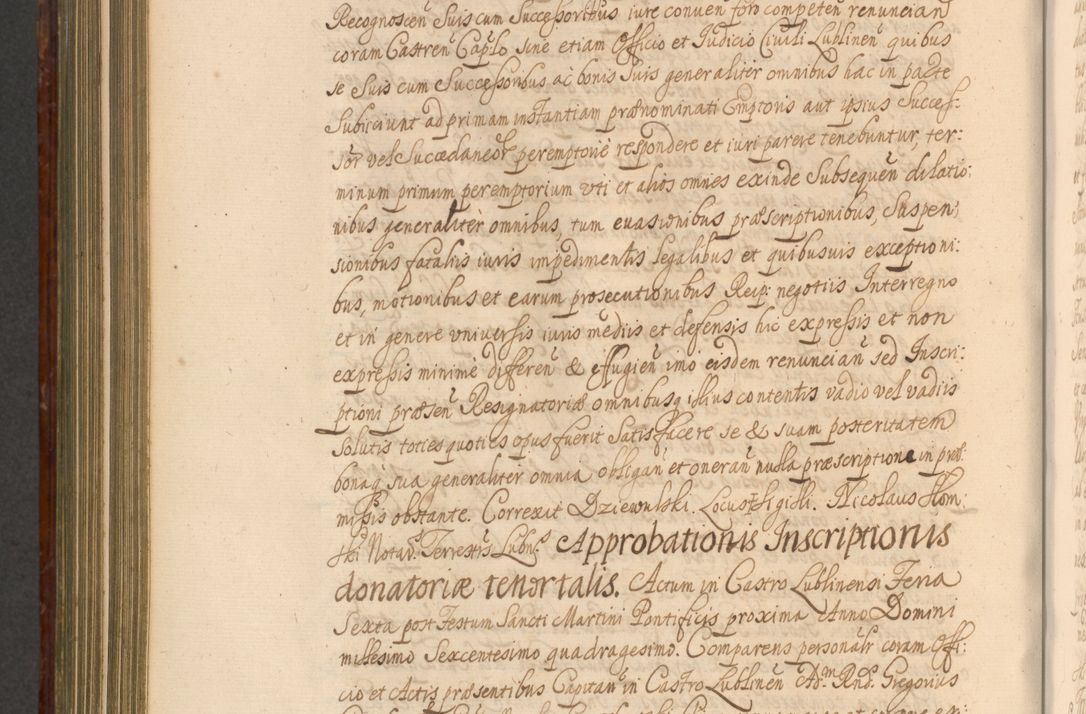 Recognoscen̄ suis cum Successoribus iure conven̄ foro competen̄ renuncian̄
coram Castren̄ Cap̄lo sine etiam Officio et Iudicio Civili Lublinen̄ quibus
se suis cum Successoribus ac bonis suis generaliter omnibus hac in parte
Subiiciunt ad primam instantiam prænominati Emptoris aut ipsius Succes-
sor̄ vel Sucædaneor̄ peremptorie respondere et iuri parere tenebuntur, ter:
minum primum peremptorium uti et alios omnes exinde Subsequen̄ dilatio:
nibus generaliter omnibus, tum evasionibus præscriptionibus, Suspen:
sionibus fatalis iuris impedimentis legalibus et quibusvis exceptioni:
bus, motionibus et earum prosecutionibus Reip: negotiis Interregno
et in genere universis iuris mediis et defensis hic expressis et non
expressis minime differen̄ & effugien̄ imo eisdem renuncian̄ sed Inscri:
ptioni præsen̄ Resignatoriæ omnibusq illius contentis vadio vel vadiis
solutis toties quoties opus fuerit Satisfacere se & suam posteritatem
bonaq sua generaliter omnia obligan̄ et oneran̄ nulla præscriptione in præ:
missis obstante. Correxit Dziewulski. Locus Sigilli. Nicolaus Hom:
ski Notar̄. Terrestris Lubn̄.s Approbationis Inscriptionis
donatoriæ tenor talis. Actum in Castro Lublinensi Feria
Sexta post Festum Sancti Martini Pontificis proxima Anno Domini
millesimo Sexcentesimo quadragesimo. Comparens personalr coram Offi:
cio et Actis præsentibus Capitan̄ in Castro Lublinen̄ Ad.m Rnd.s Gregorius